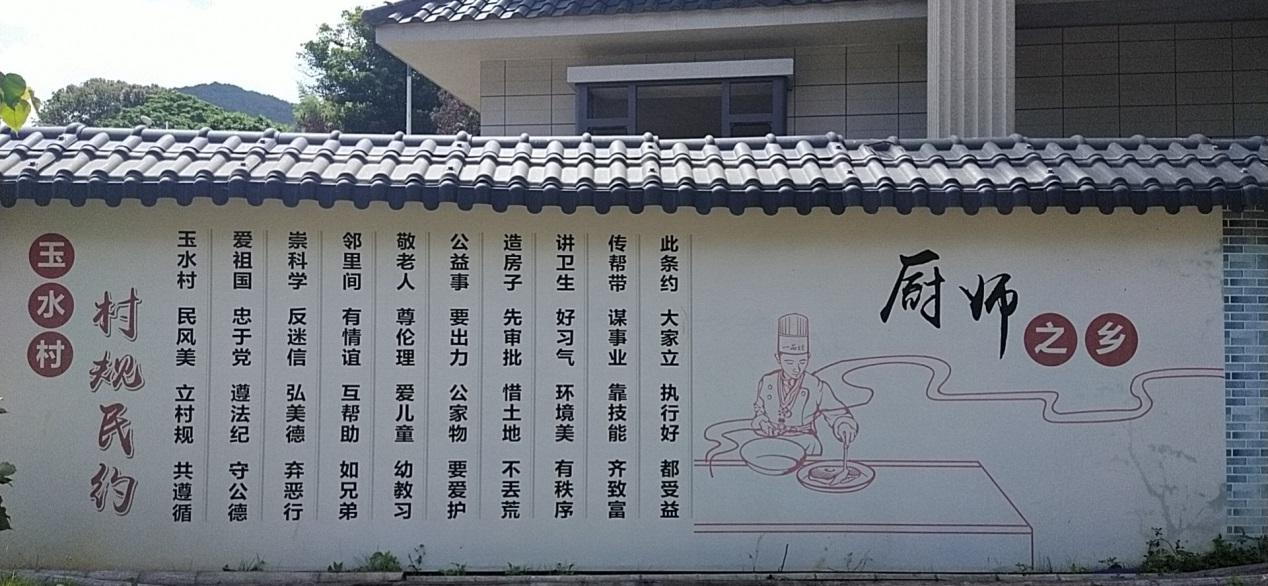 玉水村
村规民约
玉水村 民风美 立村规 共遵循
爱祖国 忠于党 遵法纪 守公德
崇科学 反迷信 弘美德 弃恶行
邻里间 有情谊 互帮助 如兄弟
敬老人 尊伦理 爱儿童 幼教习
公益事 要出力 公家物 要爱护
造房子 先审批 惜土地 不丢荒
讲卫生 好习气 环境美 有秩序
传帮带 谋事业 靠技能 齐致富
此条约 大家立 执行好 都受益
厨师之乡